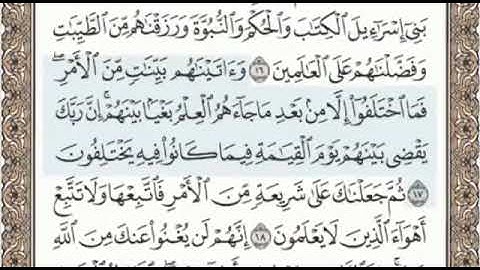 بَنِىٓ إِسْرَٰٓءِيلَ ٱلْكِتَٰبَ وَٱلْحُكْمَ وَٱلنُّبُوَّةَ وَرَزَقْنَٰهُم مِّنَ ٱلطَّيِّبَٰتِ
وَفَضَّلْنَٰهُمْ عَلَى ٱلْعَٰلَمِينَ ١٦ وَءَاتَيْنَٰهُم بَيِّنَٰتٍ مِّنَ ٱلْأَمْرِ ۖ
فَمَا ٱخْتَلَفُوٓا۟ إِلَّا مِنۢ بَعْدِ مَا جَآءَهُمُ ٱلْعِلْمُ بَغْيًۢا بَيْنَهُمْ ۚ إِنَّ رَبَّكَ
يَقْضِى بَيْنَهُمْ يَوْمَ ٱلْقِيَٰمَةِ فِيمَا كَانُوا۟ فِيهِ يَخْتَلِفُونَ
١٧ ثُمَّ جَعَلْنَٰكَ عَلَىٰ شَرِيعَةٍ مِّنَ ٱلْأَمْرِ فَٱتَّبِعْهَا وَلَا تَتَّبِعْ
أَهْوَآءَ ٱلَّذِينَ لَا يَعْلَمُونَ ١٨ إِنَّهُمْ لَن يُغْنُوا۟ عَنكَ مِنَ ٱللَّهِ